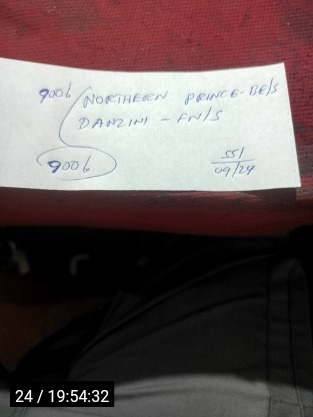 9006 NORTHERN PRINCE-BE/S
DANZINI - FN/S
9006
551
09/24
24 / 19:54:32